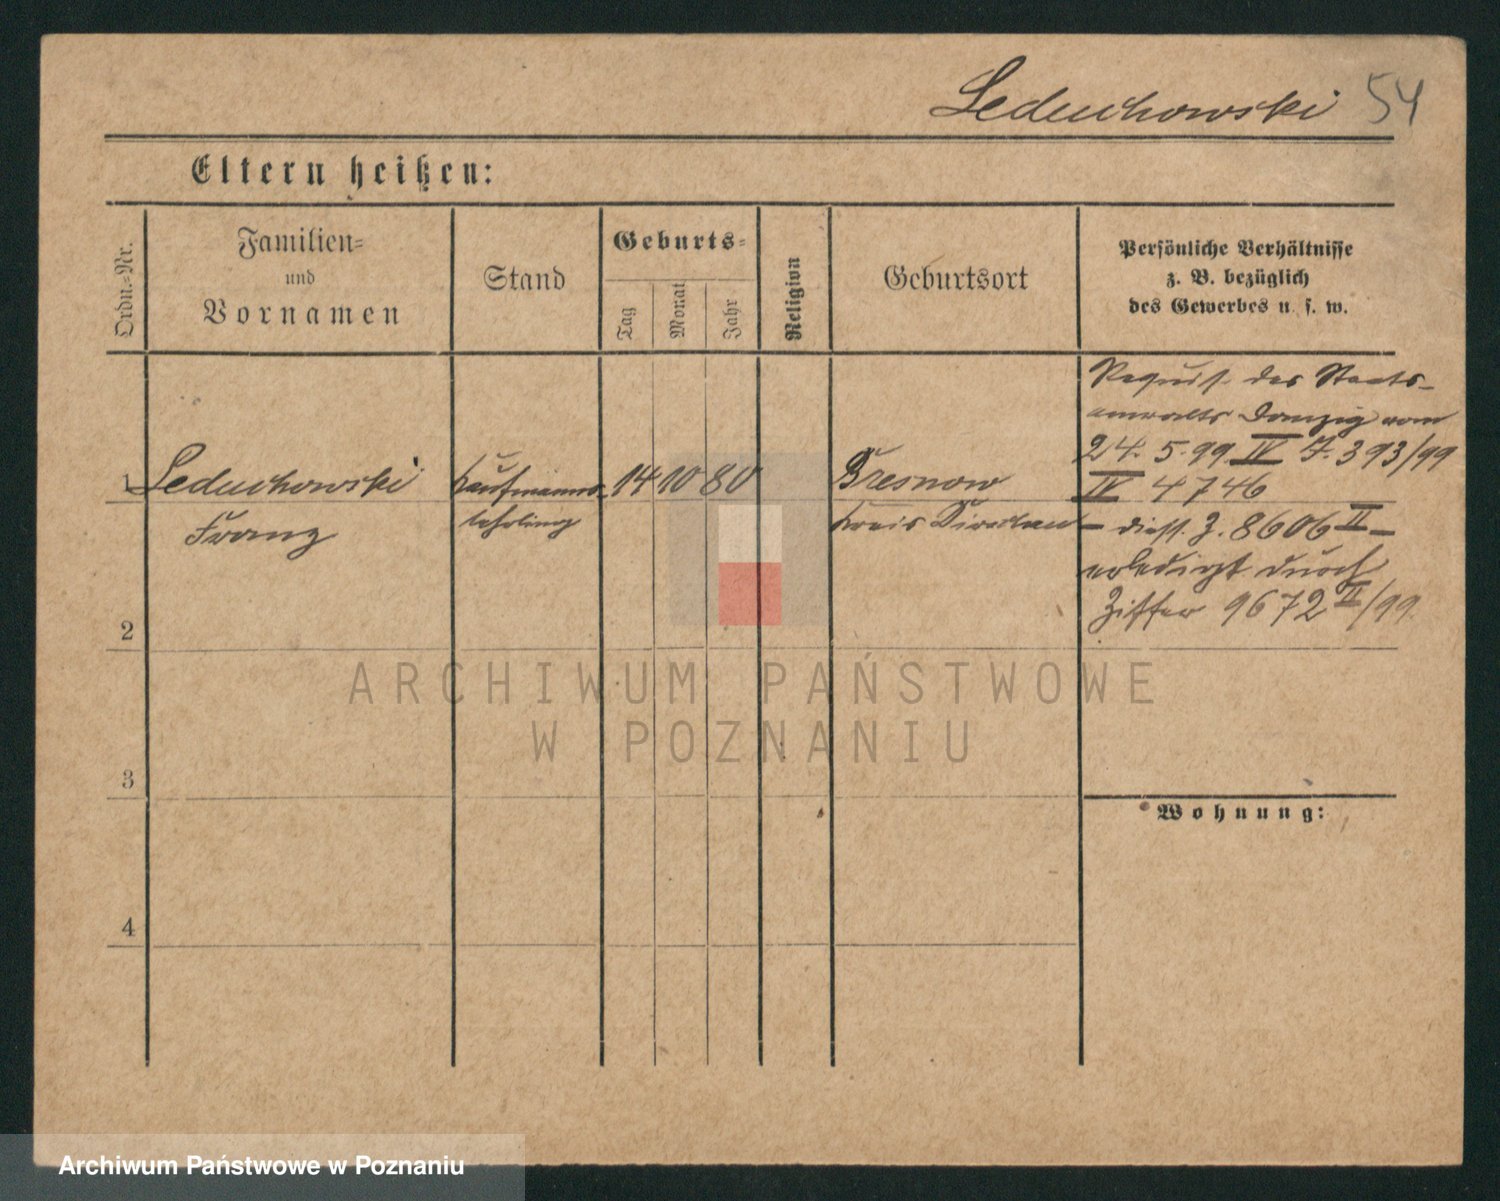 Leduchowski 54
Eltern heißen:
Ordn.-Nr.
Familien-
und
Vornamen
Stand
Geburts-
Tag
Monat
Jahr
Religion
Geburtsort
Persönliche Verhältnisse
z. B. bezüglich
des Gewerbes u. s. w.
1 Leduchowski
Franz
Kaufmanns-
lehrling
14 10 80
Bresnow
Kreis Dirschau
Requis. des Staats-
anwalts Danzig vom
24. 5. 99 IV J. 393/99
IV 4746
- diess. Z. 8606 II -
erledigt durch
Ziffer 9672 II/99.
2
3
4
Wohnung:
ARCHIWUM PAŃSTWOWE
W POZNANIU
Archiwum Państwowe w Poznaniu